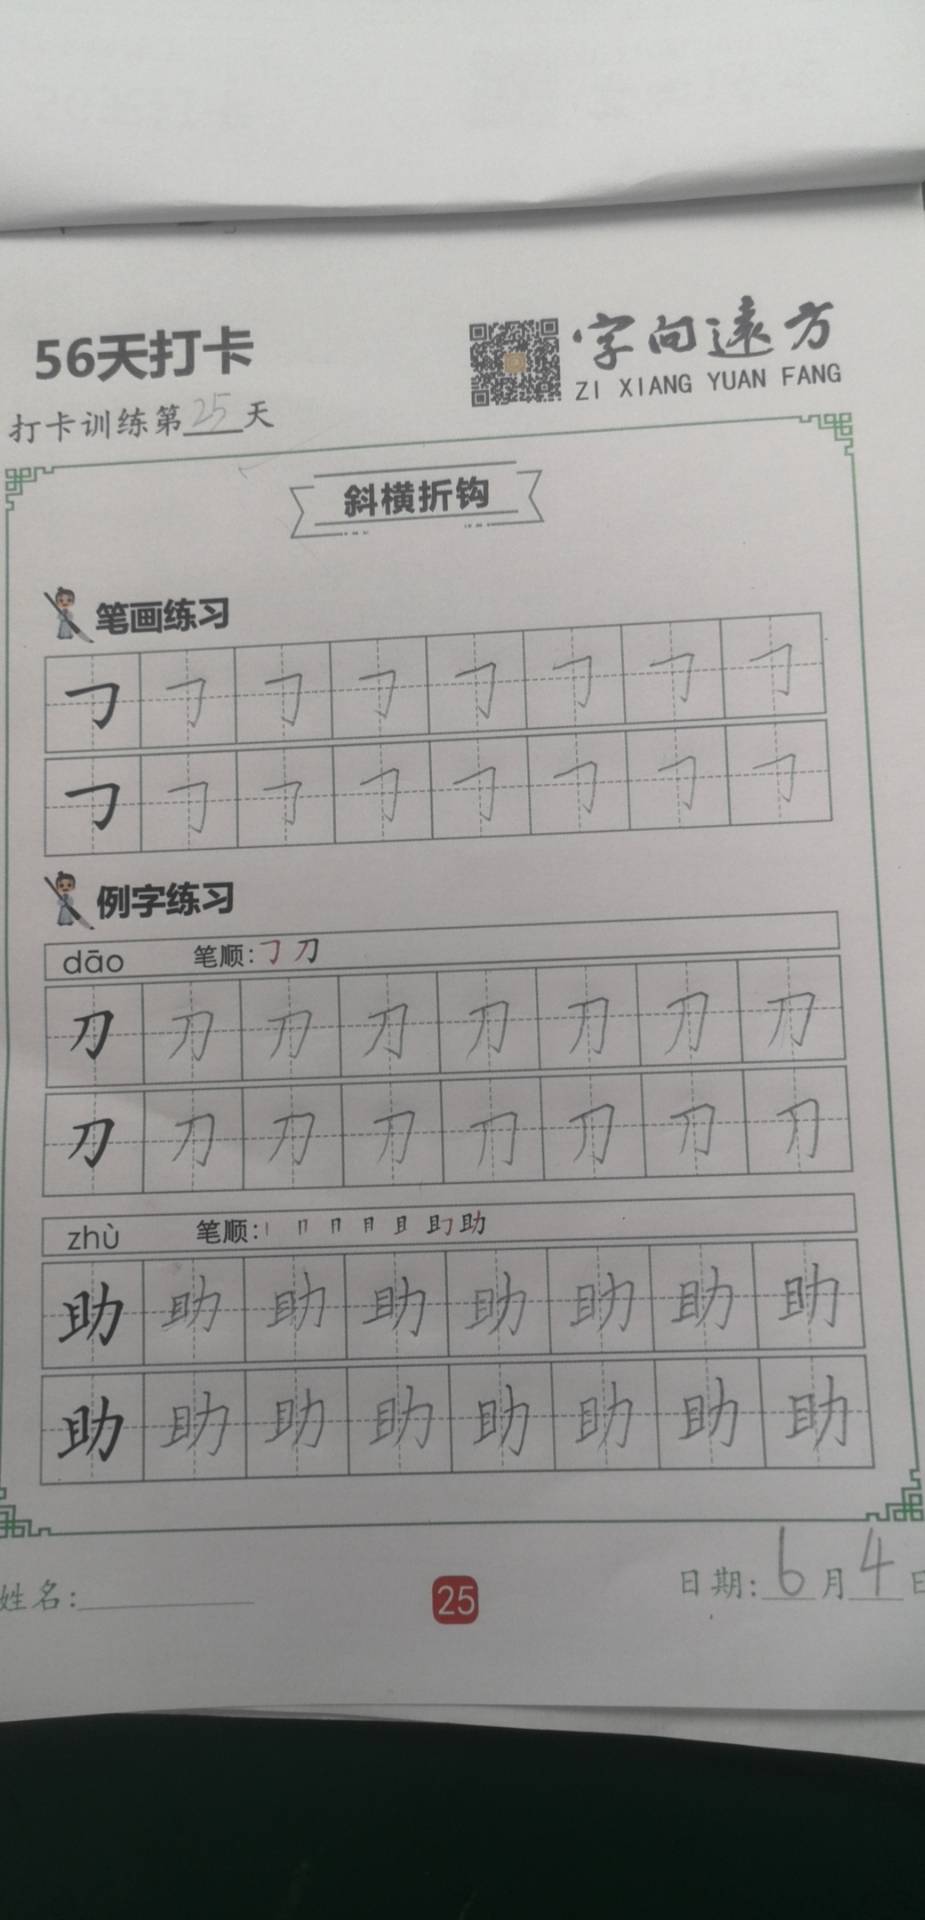 56天打卡
字向遠方
ZI XIANG YUAN FANG
打卡训练第25天
斜横折钩
笔画练习
㇆㇆㇆㇆㇆㇆㇆㇆
㇆㇆㇆㇆㇆㇆㇆㇆
例字练习
dāo 笔顺:㇆刀
刀刀刀刀刀刀刀刀
刀刀刀刀刀刀刀刀
zhù 笔顺:丨 冂 月 且 助
助助助助助助助助
助助助助助助助助
姓名:
25
日期:6月4日